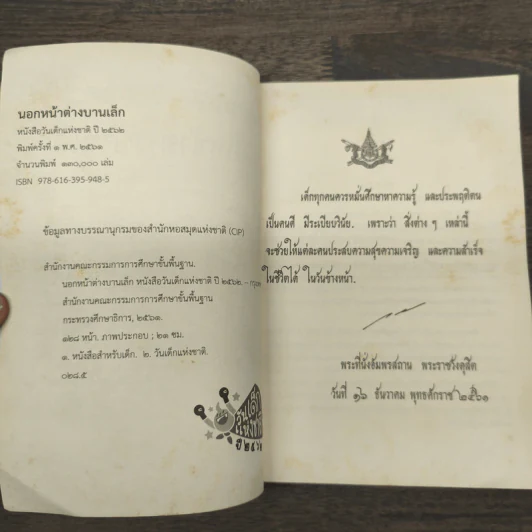 นอกหน้าต่างบานเล็ก
หนังสือวันเด็กแห่งชาติ ปี ๒๕๖๒
พิมพ์ครั้งที่ ๑ พ.ศ. ๒๕๖๑
จำนวนพิมพ์ ๑๓๐,๐๐๐ เล่ม
ISBN 978-616-395-948-5
ข้อมูลทางบรรณานุกรมของสำนักหอสมุดแห่งชาติ (CIP)
สำนักงานคณะกรรมการการศึกษาขั้นพื้นฐาน.
นอกหน้าต่างบานเล็ก หนังสือวันเด็กแห่งชาติ ปี ๒๕๖๒. --
สำนักงานคณะกรรมการการศึกษาขั้นพื้นฐาน
กระทรวงศึกษาธิการ, ๒๕๖๑.
๑๒๘ หน้า. ภาพประกอบ ; ๒๑ ซม.
๑. หนังสือสำหรับเด็ก. ๒. วันเด็กแห่งชาติ.
๐๒๘.๕
วันเด็ก
แห่งชาติ
ปี ๒๕๖๒
เด็กทุกคนควรหมั่นศึกษาหาความรู้ และประพฤติตน
เป็นคนดี มีระเบียบวินัย. เพราะว่า สิ่งต่าง ๆ เหล่านี้
จะช่วยให้แต่ละคนประสบความสุขความเจริญ และความสำเร็จ
ในชีวิตได้ ในวันข้างหน้า.
พระที่นั่งอัมพรสถาน พระราชวังดุสิต
วันที่ ๑๖ ธันวาคม พุทธศักราช ๒๕๖๑